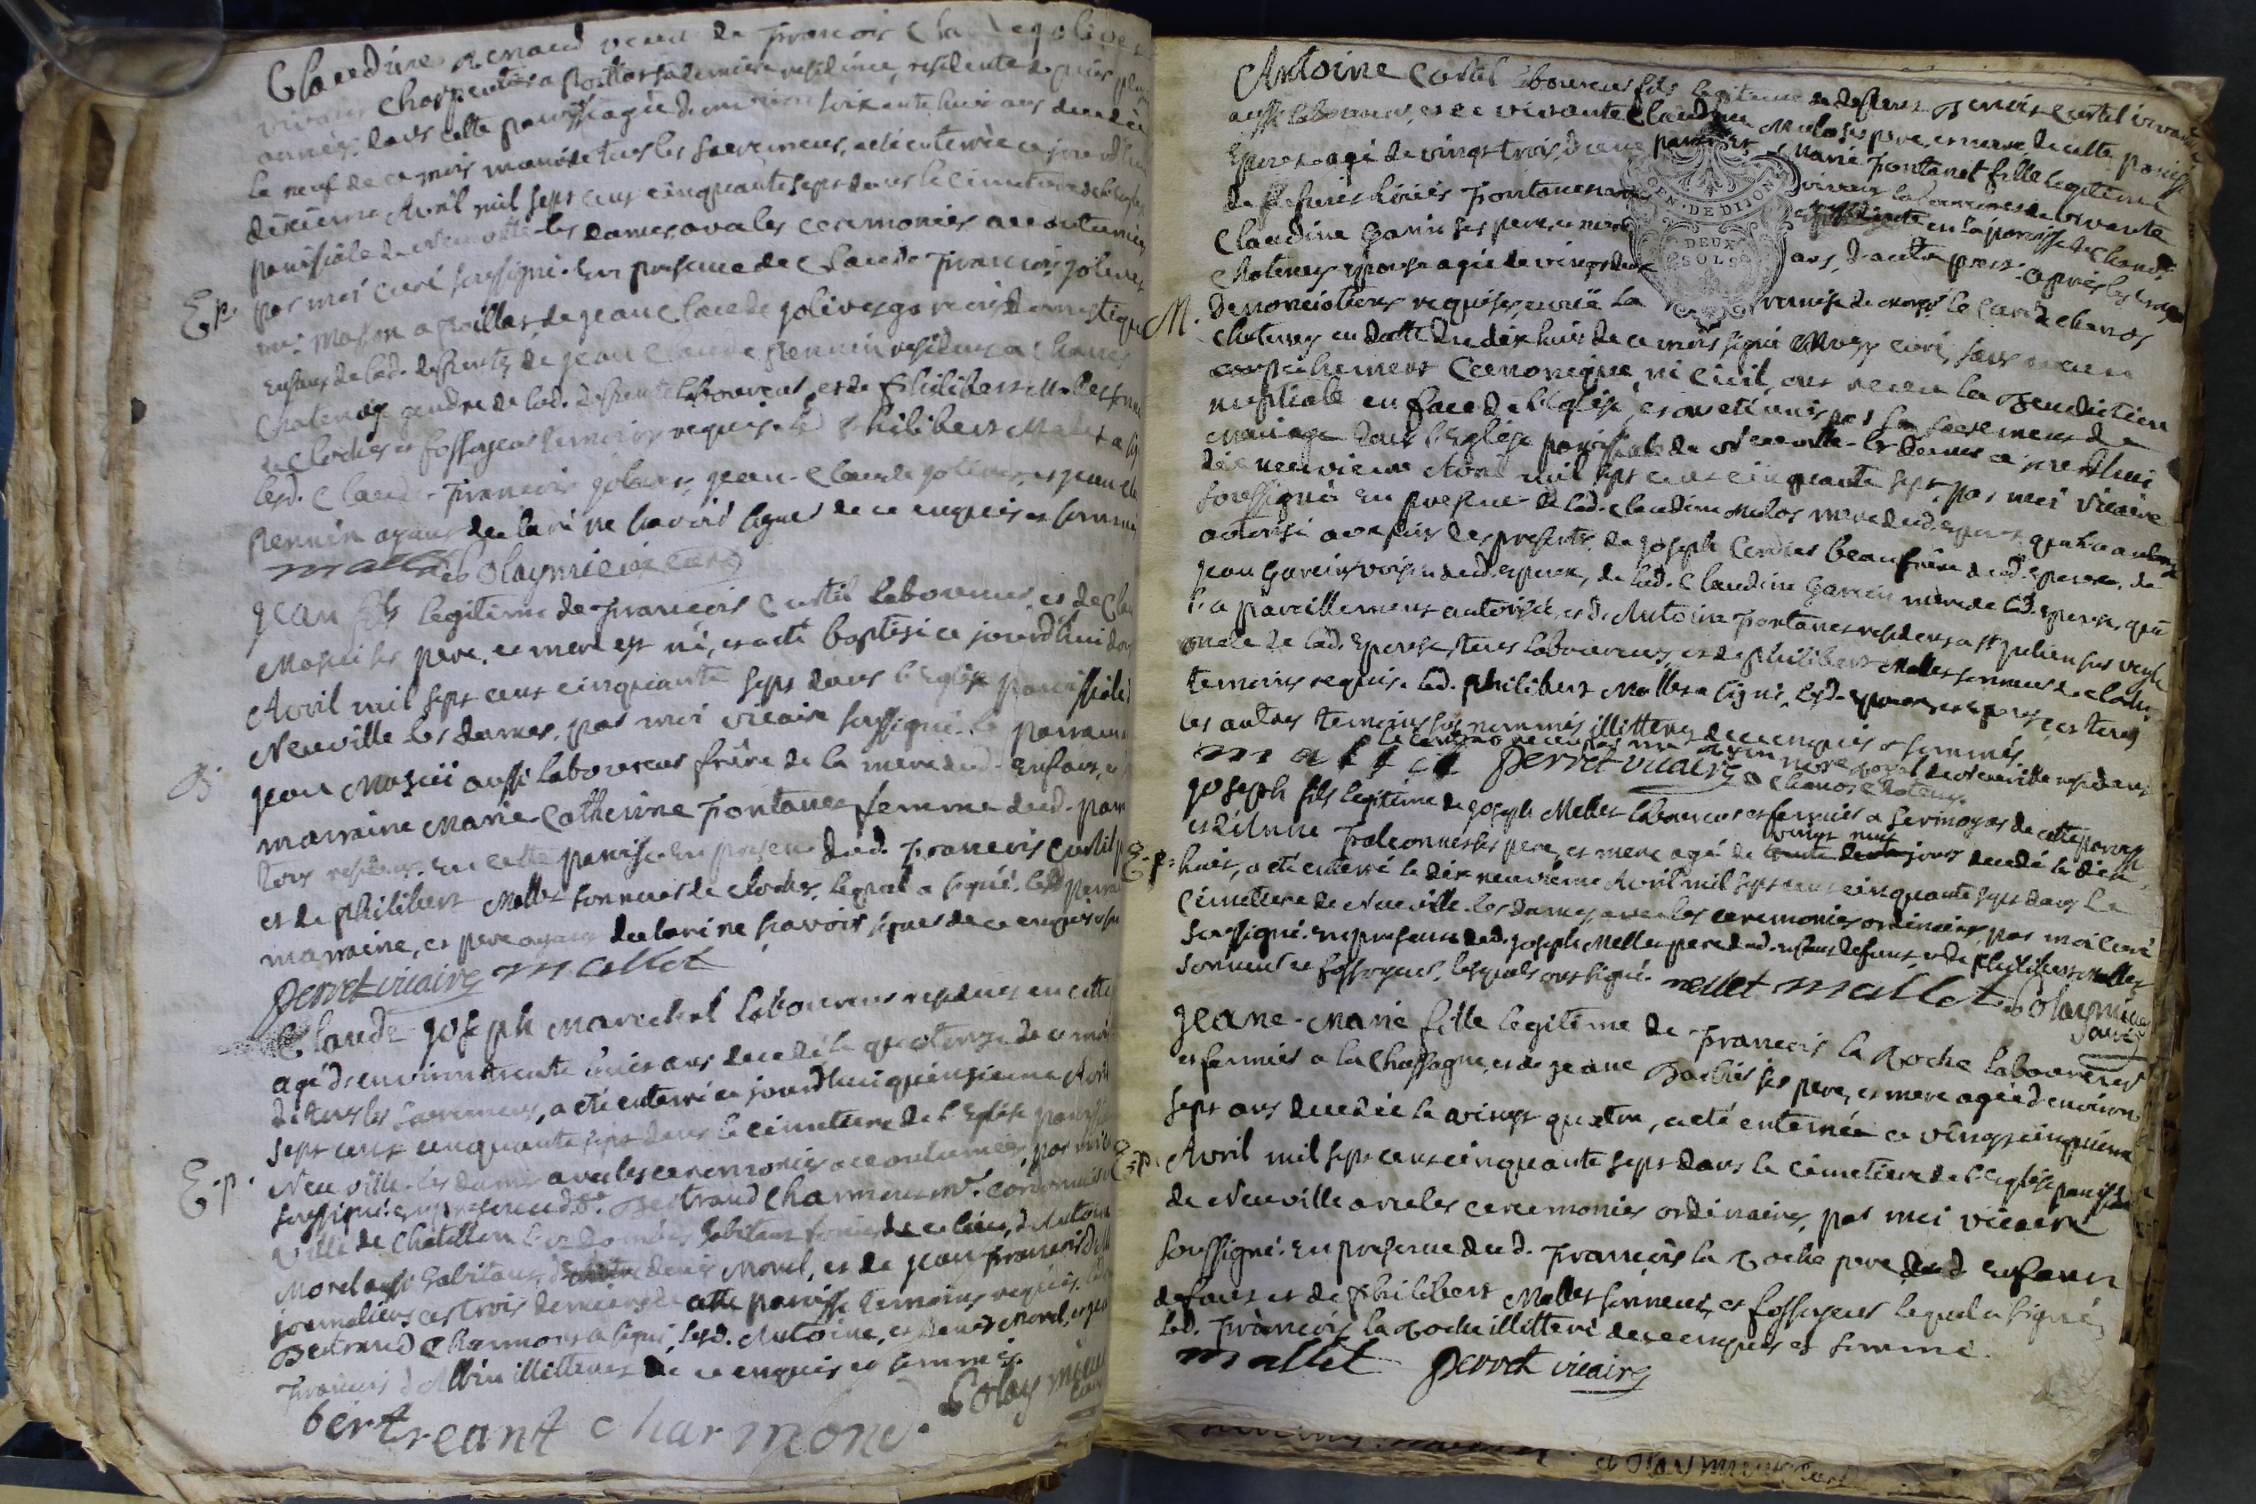 Claudine Renaud veuve de François Claude Jolivet
vivant charpentier a Poillat sa derniere residence, residente depuis plus
années dans cette paroisse agée d'environ soixante huit ans decedée
le neuf de ce mois munie de tous les sacremens, a eté enterrée ce jourd'hui
dixieme Avril mil sept cens cinquante sept dans le cimetiere de l'Eglise
paroissiale de Neuville-les dames, avec les ceremonies accoutumées
Ep. par moi curé soussigné. En presence de Claude François Jolivet
me. Masson a Poillat, de jean Claude Jolivet garcois domestique
enfans de lad. defunte, de jean Claude Perrin resident a Chanos
Chatenay gendre de lad. defunte laboureur, et de Philibert Mallet sonneur
de cloches et fossoyeur temoins requis. led. Philibert Mallet a signé
lesd. Claude-François Jolivet, jean-Claude Jolivet, et jean Claude
Perrin ayans declaré ne scavoir signer de ce enquis et sommés
mallet curé
jean fils legitime de François Curtil laboureur, et de Claudine
ses pere, et mere est né, et a eté baptisé ce jourd'hui
Avril mil sept cens cinquante sept dans l'Eglise paroissiale
Neuville les dames, par moi vicaire soussigné. le parrain
B. jean aussi laboureur frère de la mere dud. enfant, et
marraine Marie-Catherine Fontanet femme dud. parrain
tous residens en cette paroisse. En presence dud. François Curtil
et de philibert Mallet sonneur de cloches, lequel a signé. lesd. parrain
marraine, et pere ayans declaré ne scavoir signer de ce enquis et sommés
perret vicaire mallet
Claude-joseph Marechal laboureur resident en cette
agé d'environ trente huit ans decedé le quatorze de ce mois
de tous les sacremens, a eté enterré ce jourd'hui quinzieme Avril
sept cens cinquante sept dans le cimetiere de l'Eglise paroissiale
Ep. Neuville-les dames avec les ceremonies accoutumées, par moi
soussigné. en presence de Sr. Bertrand Charmont me. cordonnier
ville de Chatillon les Dombes habitant de ce lieu, d'Antoine
Morel aussi habitant, de denis Morel, et de jean François
journaliers ces trois derniers de cette paroisse temoins requis. led.
Bertrand Charmont a signé, lesd. Antoine, et denis Morel, et jean
François illitterés de ce enquis et sommés.
bertreant charmond.
Antoine Curtil laboureur fils legitime de defunt Benoit Curtil vivant
aussi laboureur, et de vivante Claudine Mulos ses pere, et mere de cette paroisse
Epoux agé de vingt trois, d'une part, et Marie Fontanet fille legitime
de defunt Fontanet vivant laboureur et de vivante
Claudine Garin ses pere, et mere residente en la paroisse de Chanos
Chatenay epouse agée de vingt deux ans, d'autre part. après les trois
M. denonciations requises, envüe la remise de Messe. le Curé de Chanos
Chatenay en datte du dix huit de ce mois signé curé, sans aucun
empechement Canonique, ni civil, ont receu la Benediction
nuptiale en face de l'Eglise, et ont eté unis par le sacrement de
mariage dans l'Eglise paroissiale de Neuville-les Dames ce jourd'hui
dix neuvieme Avril mil sept cens cinquante sept, par moi vicaire
soussigné. En presence de lad. Claudine Mulos mere dud. epoux qu'elle a
autorisé aux fins des presentes, de joseph beaufrère dud. Epoux, de
jean Garin voisin dud. epoux, de lad. Claudine Garin mere de lad. epouse, qui
l'a pareillement autorisée, et d'Antoine Fontanet resident a St julien sur veyle
oncle de lad. Epouse, tous laboureurs, et de philibert Mallet sonneur de cloches
temoins requis. led. philibert Mallet a signé, lesd. epoux, et epouse, et tous
les autres temoins sus nommés illitterés de ce enquis et sommés
mallet perret vicaire
joseph fils legitime de joseph Mellet laboureur et fermier a sermoyas de cette paroisse
et d'Anne Falconnet ses pere, et mere agé de vingt neuf jours decedé le dix
Ep. huit, a eté enterré le dix neuvième Avril mil sept cens cinquante sept dans le
cimetiere de Neuville-les dames avec les ceremonies ordinaires, par moi curé
soussigné. En presence dud. joseph Mellet pere dud. enfant defunt, et de philibert Mallet
sonneur et fossoyeur, lesquels ont signé. mellet mallet
curé
jeane-Marie fille legitime de François la Roche laboureur
et fermier a la Chassagne, et de jeane Barbier ses pere, et mere agée d'environ
sept ans decedée le vingt quatre, a eté enterrée ce vingt cinquieme
Ep. Avril mil sept cens cinquante sept dans le cimetiere de l'Eglise paroissiale
de Neuville avec les ceremonies ordinaires, par moi vicaire
soussigné. En presence dud. François la Roche pere dud. enfant
defunt et de Philibert Mallet sonneur, et fossoyeur lequel a signé,
led. François la Roche illitteré de ce enquis et sommé.
mallet perret vicaire
GEN. DE DIJON
DEUX
SOLS